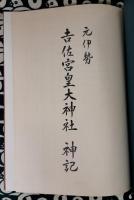 元伊勢
吉佐宮皇大神社 神記